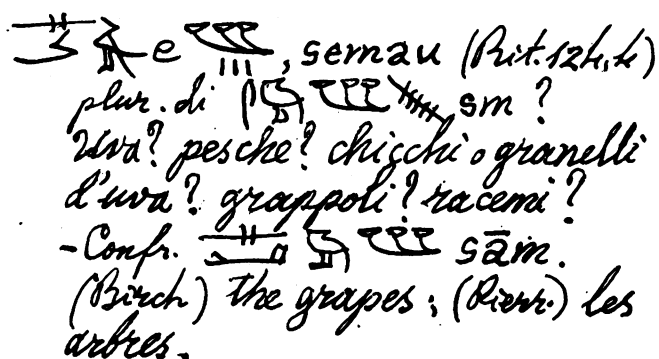 e , semau (Rit. 124, 4)
plur. di sm ?
Uva? pesche? chicchi o granelli
d'uva? grappoli? racemi?
- Confr. sām.
(Birch) the grapes; (Pierr.) les
arbres.